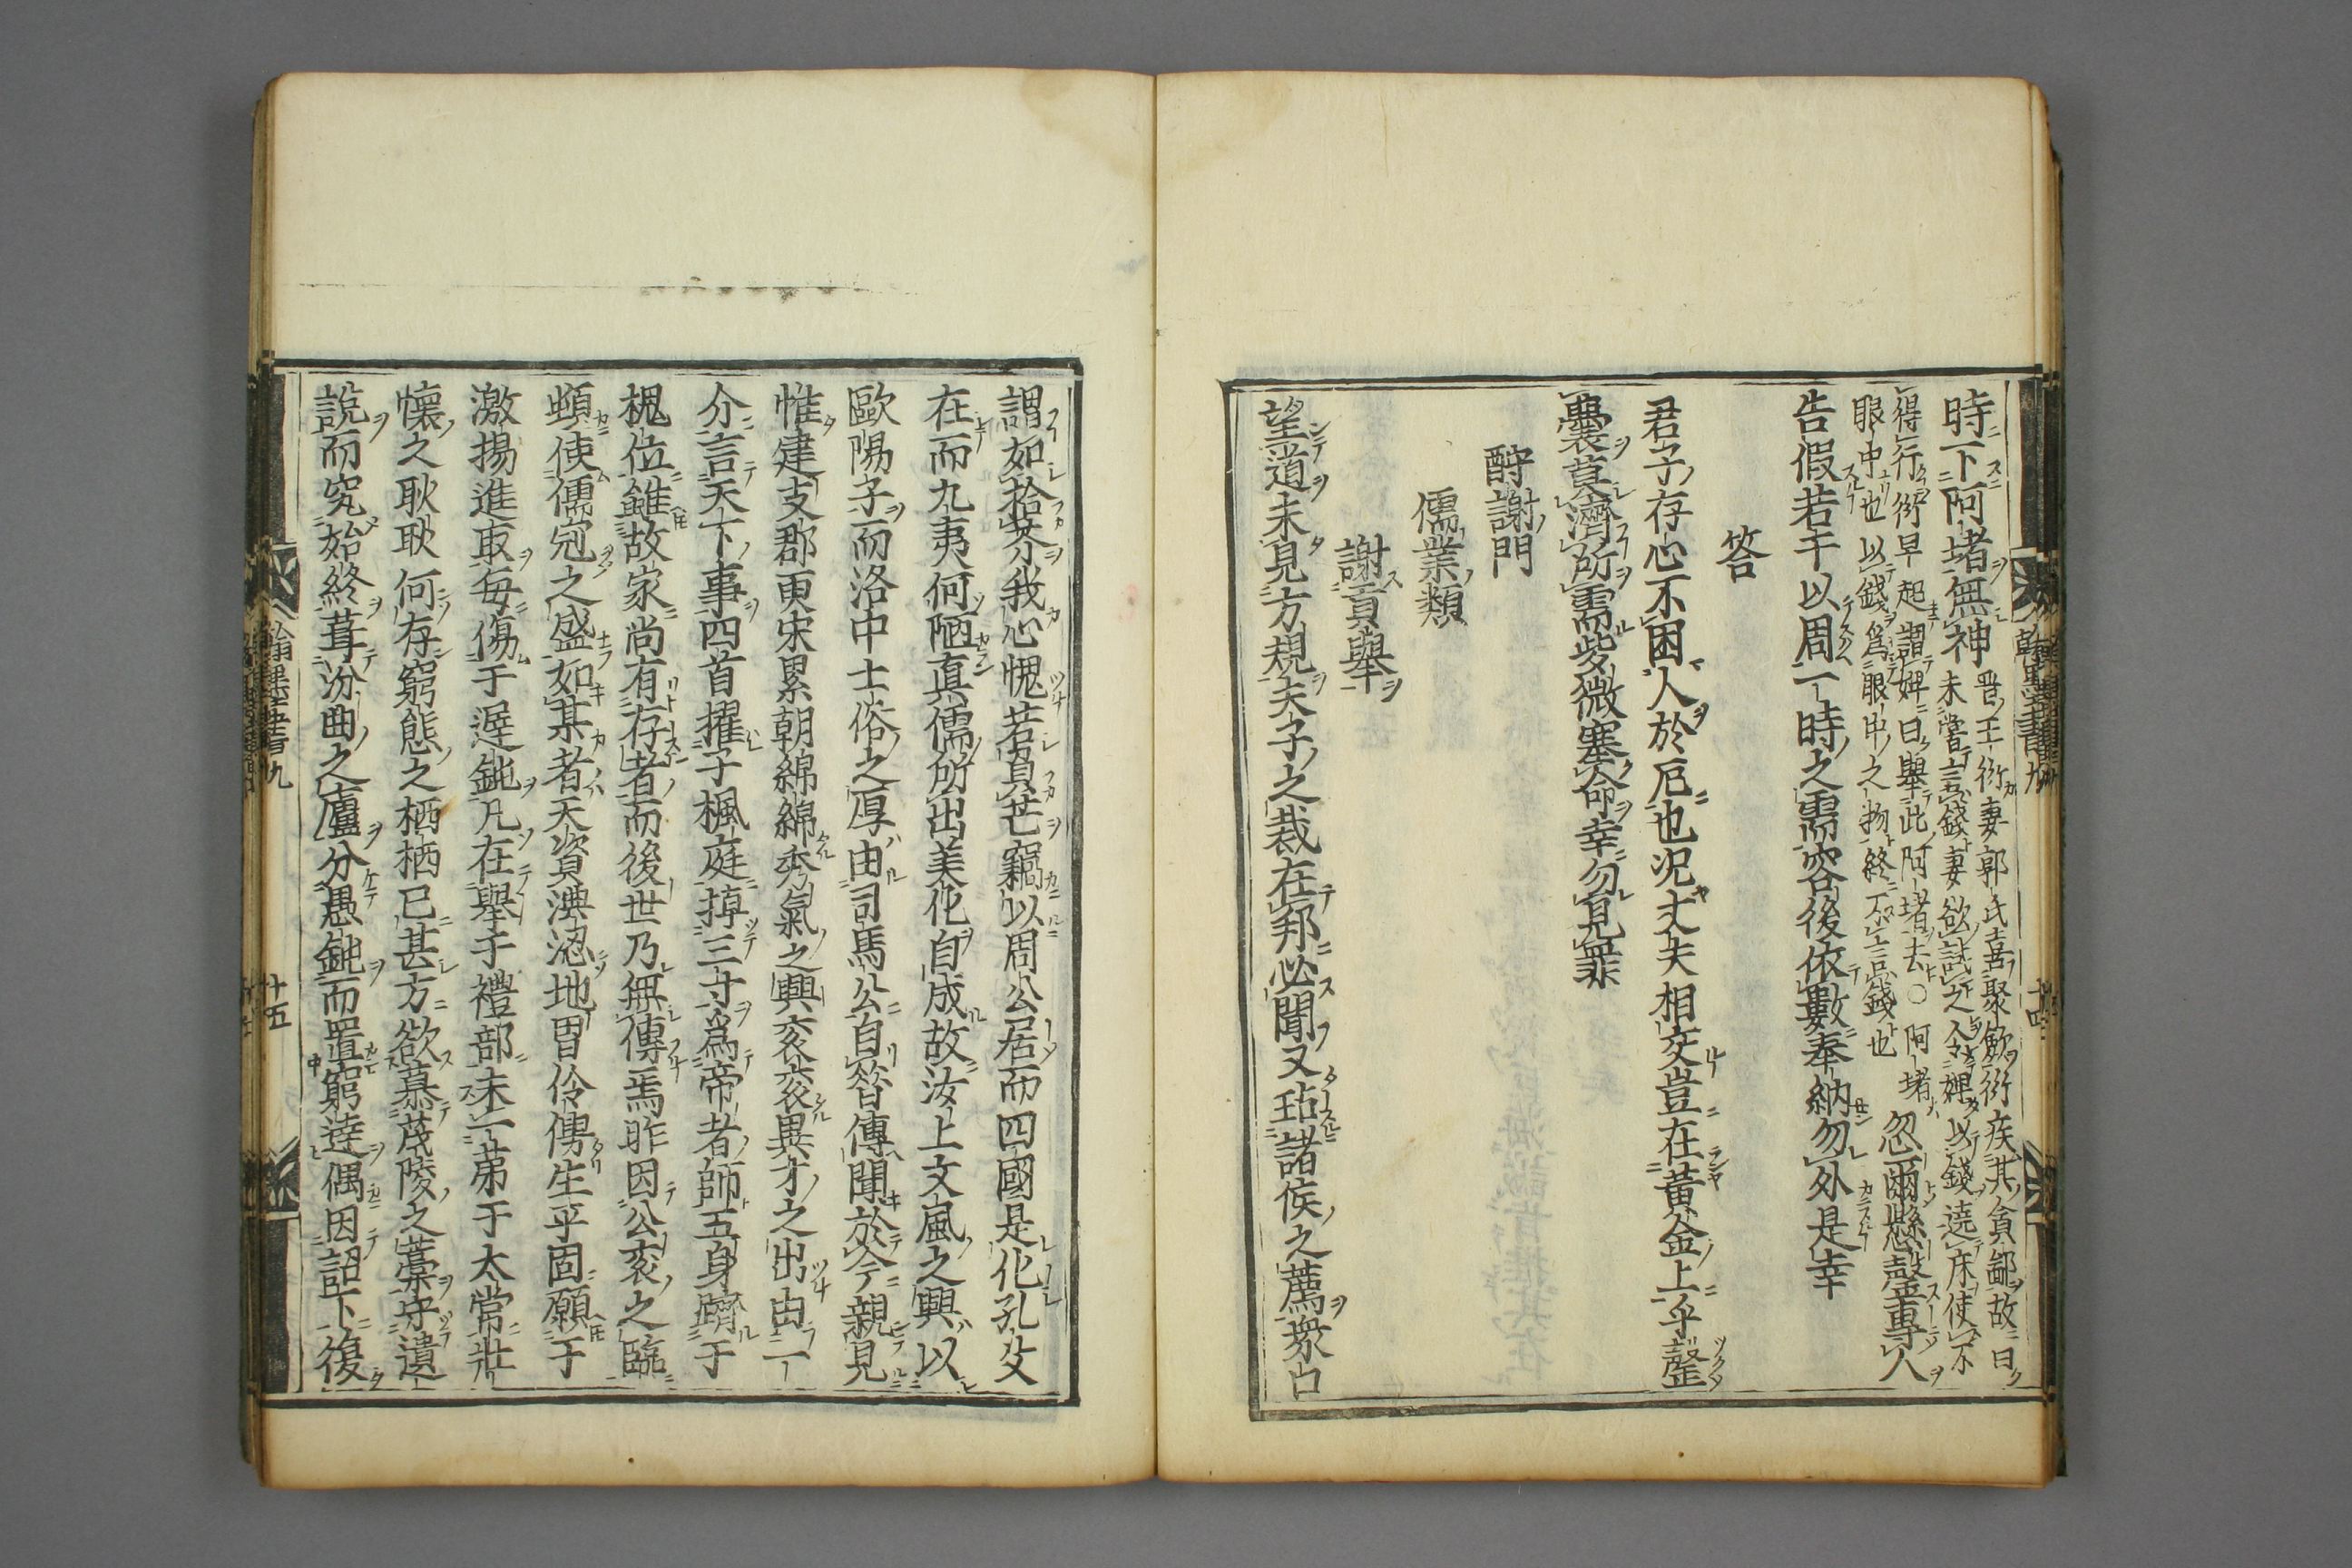 時下阿堵無神
晋王衍妻郭氏喜聚飲衍疾其貪鄙故曰
未嘗言錢妻欲試之令婢以錢遶床使不
得行衍早起謂婢曰舉此阿堵去○阿堵
眼中也以錢爲眼中之物終不言錢也
忽爾懸罄專人
告假若干以周一時之需容後依數奉納勿外是幸
答
君子存心不困人於厄也况丈夫相交豈在黃金上乎罄
囊莫濟所需玆微塞命幸勿見罪
酧謝門
儒業類
謝貢舉
望道未見方規夫子之裁在邦必聞又玷諸侯之薦衆口
謂如拾芥我心愧若負芒竊以周公居而四國是化孔父
在而九夷何陋真儒所出美化自成故汝上文風之興以
歐陽子而洛中士俗之厚由司馬公自昝傳聞於今親見
惟建支郡更宋累朝綿綿秀氣之興衮衮異才之出出一
介言天下事四首擢子楓庭掉三寸爲帝者師五身躋于
槐位雖故家尚有存者而後世乃無傳焉昨因公衮之臨
頓使儒冠之盛如某者天資淟涊地胃伶俜生乎固願于
激揚進取每傷于遲鈍凡在舉于禮部未一第于太常壯
懷之耿耿何存窮態之栖栖已甚方欲慕茂陵之藁守遺
說而究始終葺汾曲之廬分愚鈍而置窮達偶因詔下復
翰墨全書九
十五